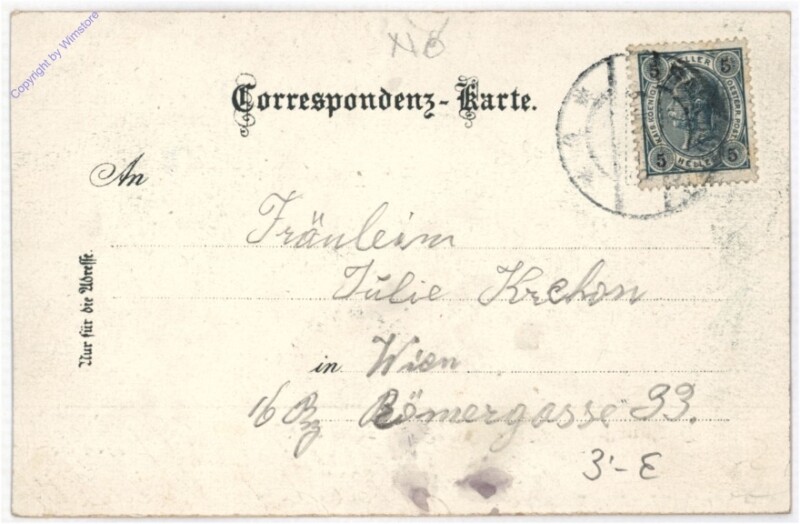 Copyright by Wimstore
NÖ
Correspondenz-Karte.
5 HELLER 5
KAIS. KOENIGL. OESTERR. POST.
5 HELLER 5
An
Fräuleim
Julie Krehon
in Wien
16 Bz Römergasse 33.
Nur für die Adresse.
3'-E